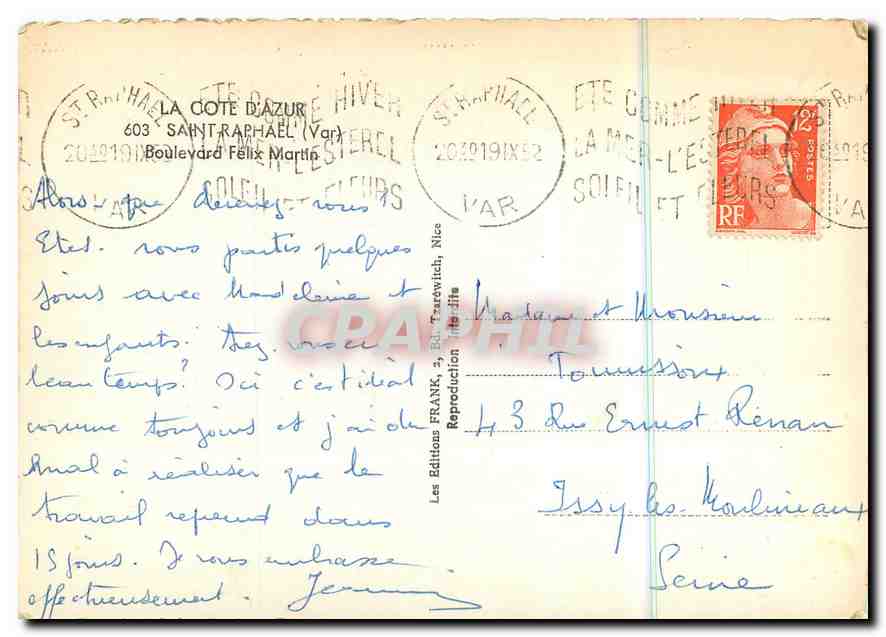 ST RAPHAEL
20 30 19 IX 52
VAR
ETE COMME HIVER
LA MER-L'ESTEREL
SOLEIL ET FLEURS
ST RAPHAEL
20 30 19 IX 52
VAR
ETE COMME HIVER
LA MER-L'ESTEREL
SOLEIL ET FLEURS
12F
POSTES
RF
LA COTE D'AZUR
603 SAINT-RAPHAEL (Var)
Boulevard Félix Martin
Alors que devenez-vous?
Etes-vous partis quelques
jours avec Madeleine et
les enfants. Avez-vous eu
beau temps? Ici c'est idéal
comme toujours et j'ai du
mal à réaliser que le
travail reprend dans
15 jours. Je vous embrasse
affectueusement.
Les Editions FRANK, 2, Bd. Tzaréwitch, Nice
Reproduction Interdite
CPAPHIL
Madame et Monsieur
43 Rue Ernest Rénan
Issy les Moulineaux
Seine